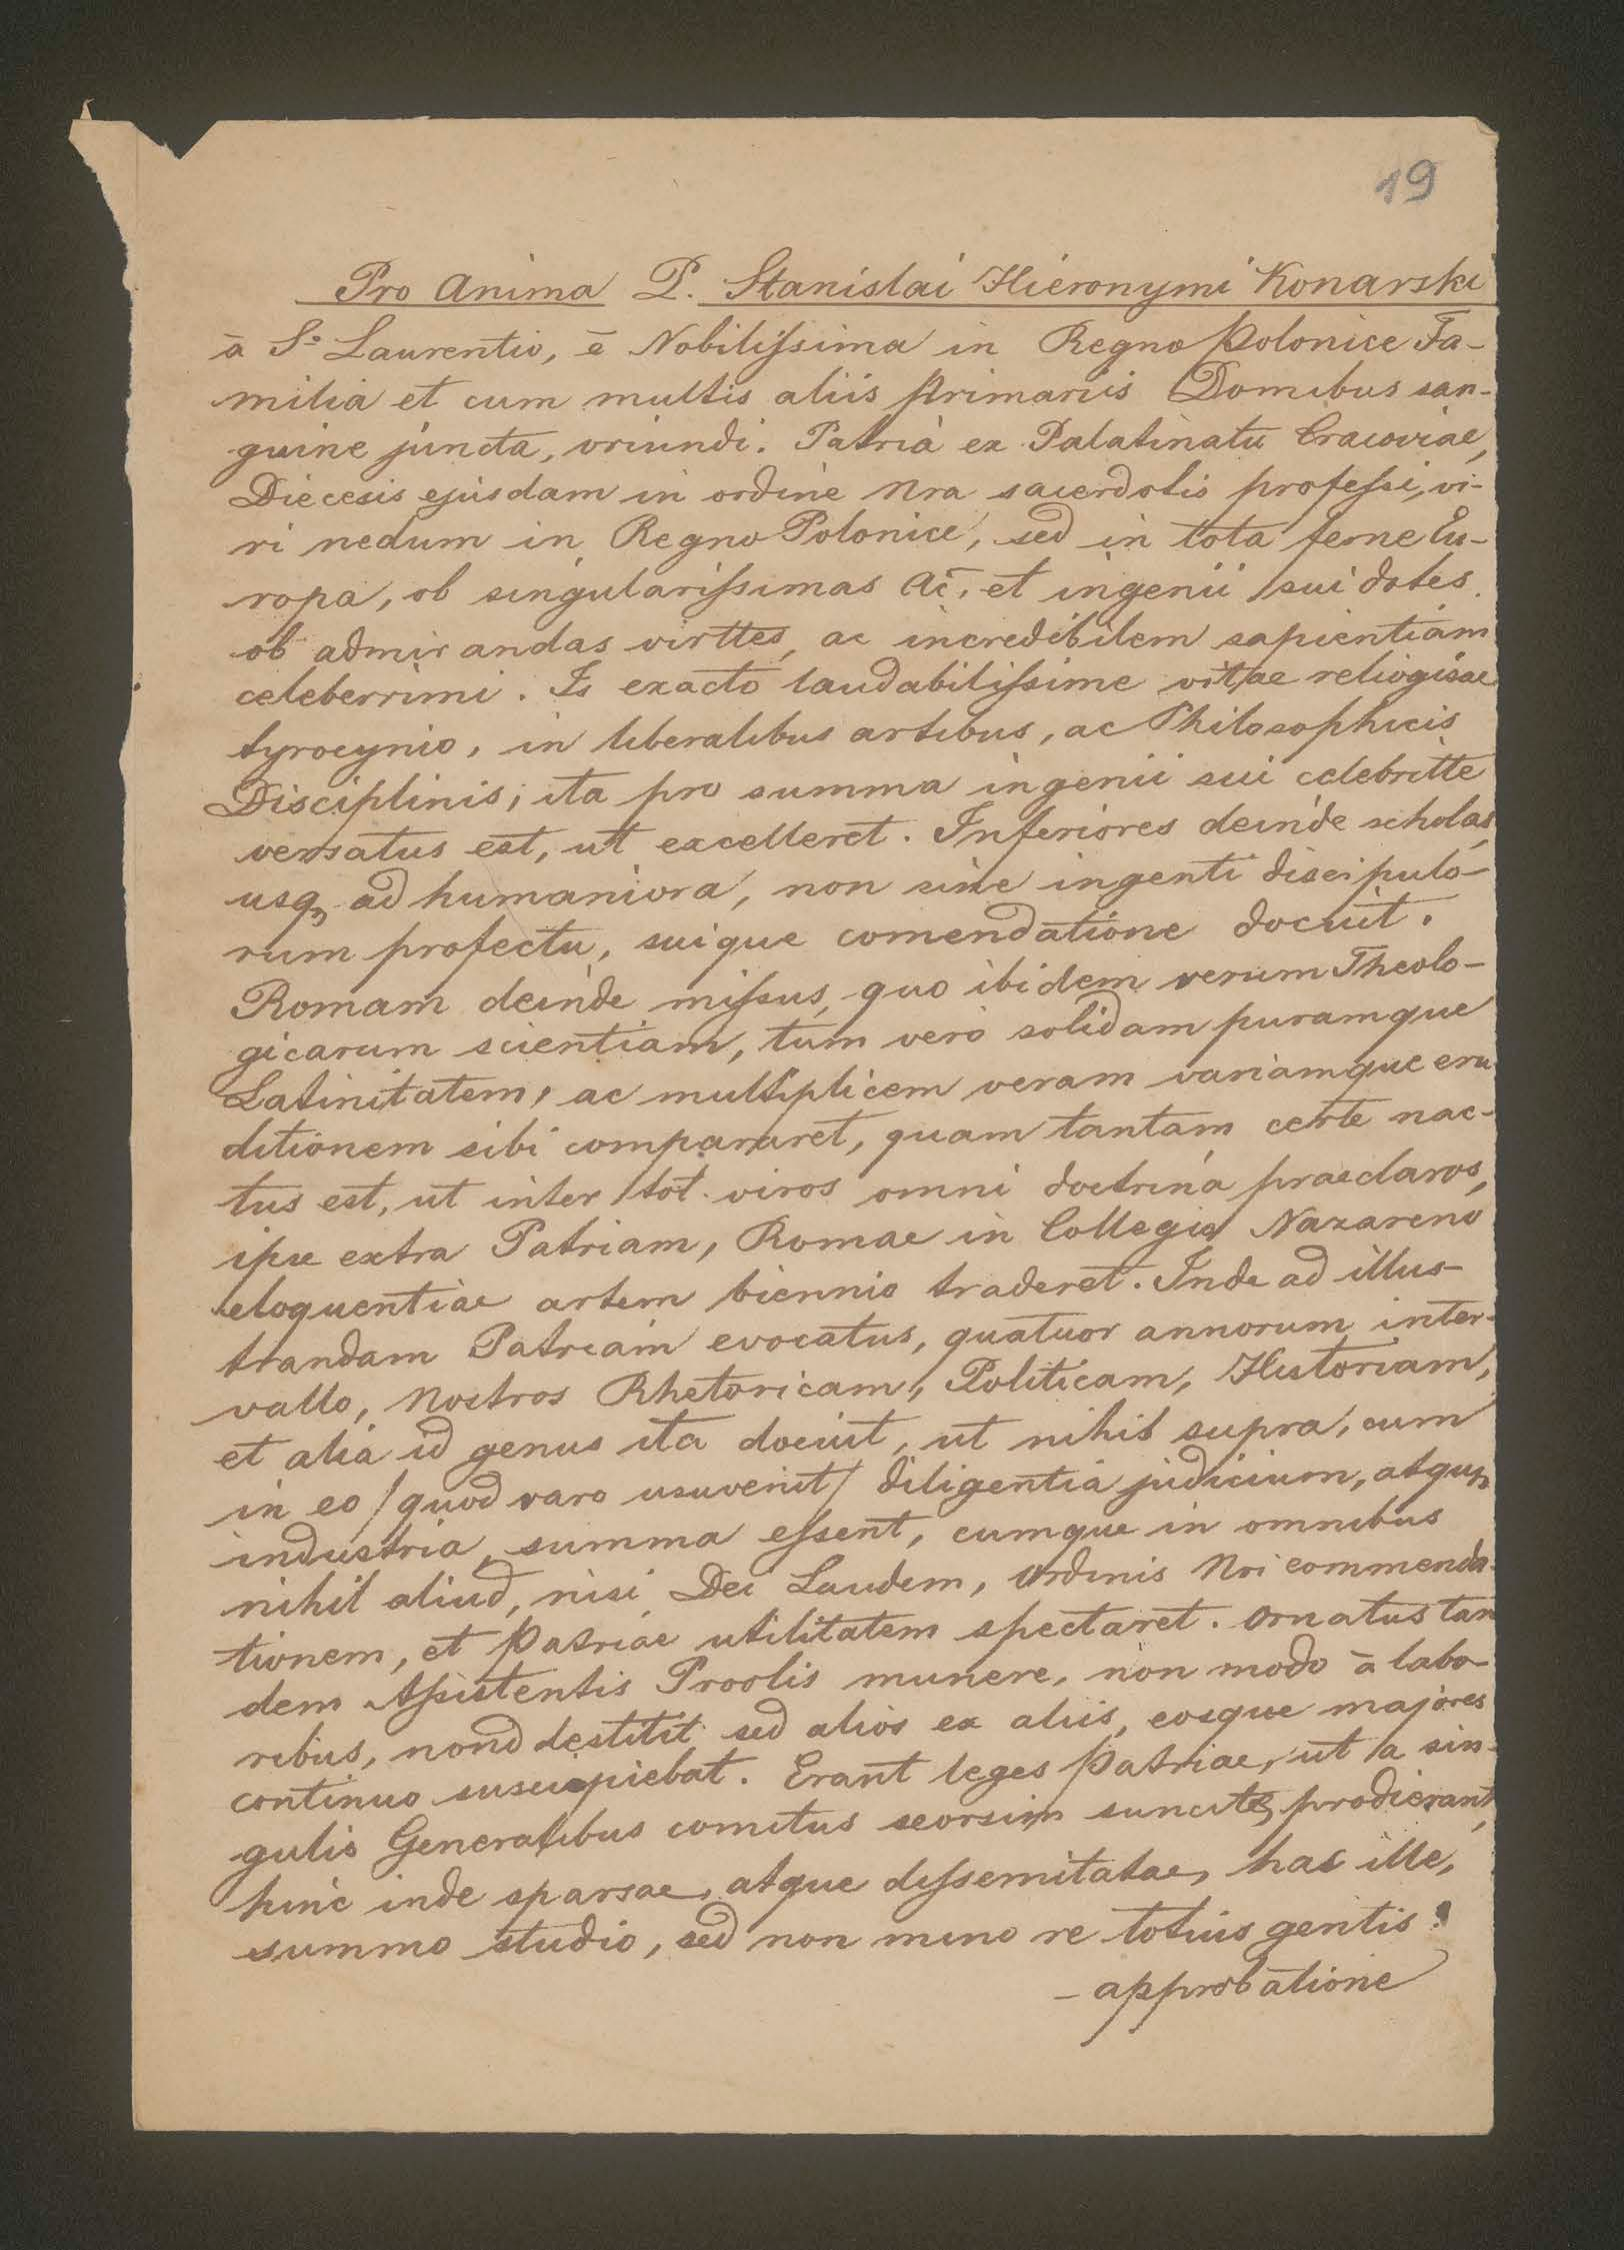 19
Pro Anima P. Stanislai Hieronymi Konarski
ā S⸰ Laurentio, ē Nobiliſsima in Regno Polonice Fa-
milia et cum multis aliis primariis Domibus san-
guine juncta, oriundi. Patriā ex Palatinatu Cracoviae,
Diecesis ejusdam in ordine Nra sacerdotis profeſsi, vi-
ri nedum in Regno Polonice, sed in tota ferne Eu-
ropa, ob singulariſsimas Ai, et ingenii sui dotes
ob admirandas virttes, ac incredibilem sapientiam
celeberrimi. Is exacto laudabiliſsime vitae reliogisae
tyrocynio, in liberalibus artibus, ac Philosophicis
Disciplinis; ita pro summa ingenii sui celebritte
versatus est, ut excelleret. Inferiores deinde scholas,
usq, ad humaniora, non sine ingenti discipulo-
rum profectu, suique comendatione docuit.
Romam deinde miſsus, quo ibidem verum Theolo-
gicarum scientiam, tum vero solidam puramque
Latinitatem, ac multiplicem veram variamque eru
ditionem sibi compararet, quam tantam certe nac-
tus est, ut inter tot viros omni doctrina praeclaros,
ipse extra Patriam, Romae in Collegio Nazareno
eloquentiae artem biennio traderet. Inde ad illus-
trandam Patriam evocatus, quatuor annorum inter-
vallo, Nostros Rhetoricam, Politicam, Historiam,
et alia id genus ita docuit, ut nihil supra, cum
in eo / quod raro usuvenit / diligentia judicium, atque
industria, summa eſsent, cumque in omnibus
nihil aliud, nisi Dei Laudem, Ordinis Nri commenda-
tionem, et Patriae utilitatem spectaret. Ornatus tan
dem Aſsistentis Proolis munere, non modo ā labo-
ribus, nond destitit sed alios ex aliis, eosque majores
continuo suscipiebat. Erant leges Patriae, ut a sin-
gulis Generalibus comitus seorsim prodierant,
hinc inde sparsae, atque diſsemitatae, has ille,
summo studio, sed non mino re totius gentis
- approbatione